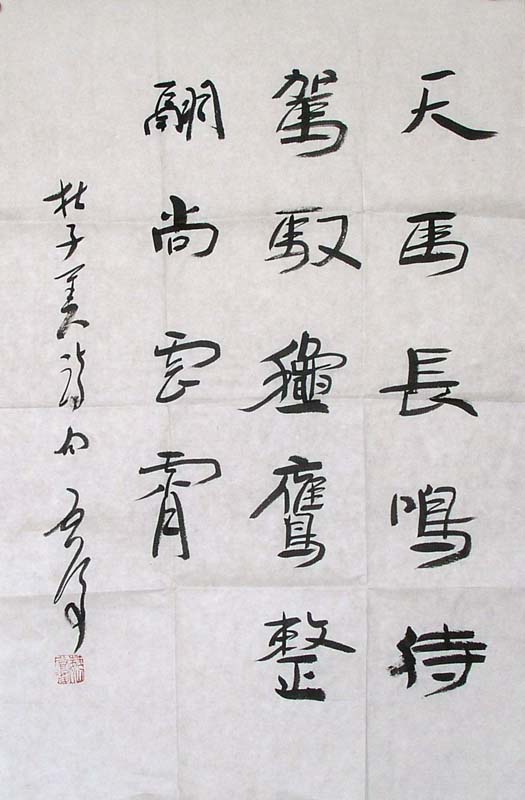 天馬長鳴待
駕馭龝鷹整
翮尚雲霄
杜子美詩句